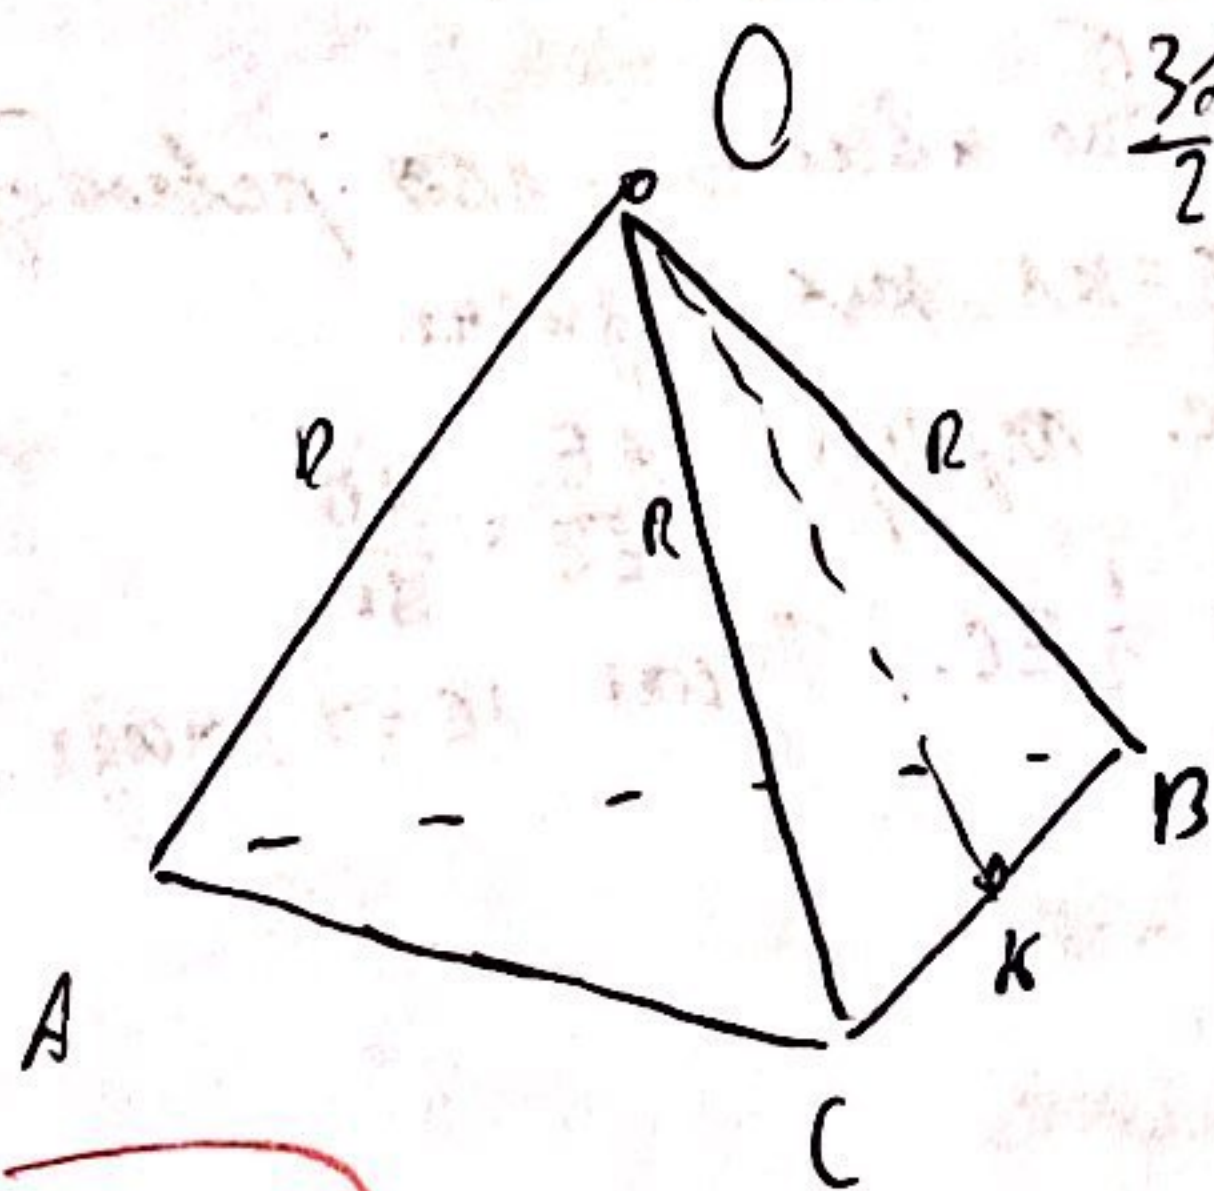 O
R
R
R
B
K
A
C